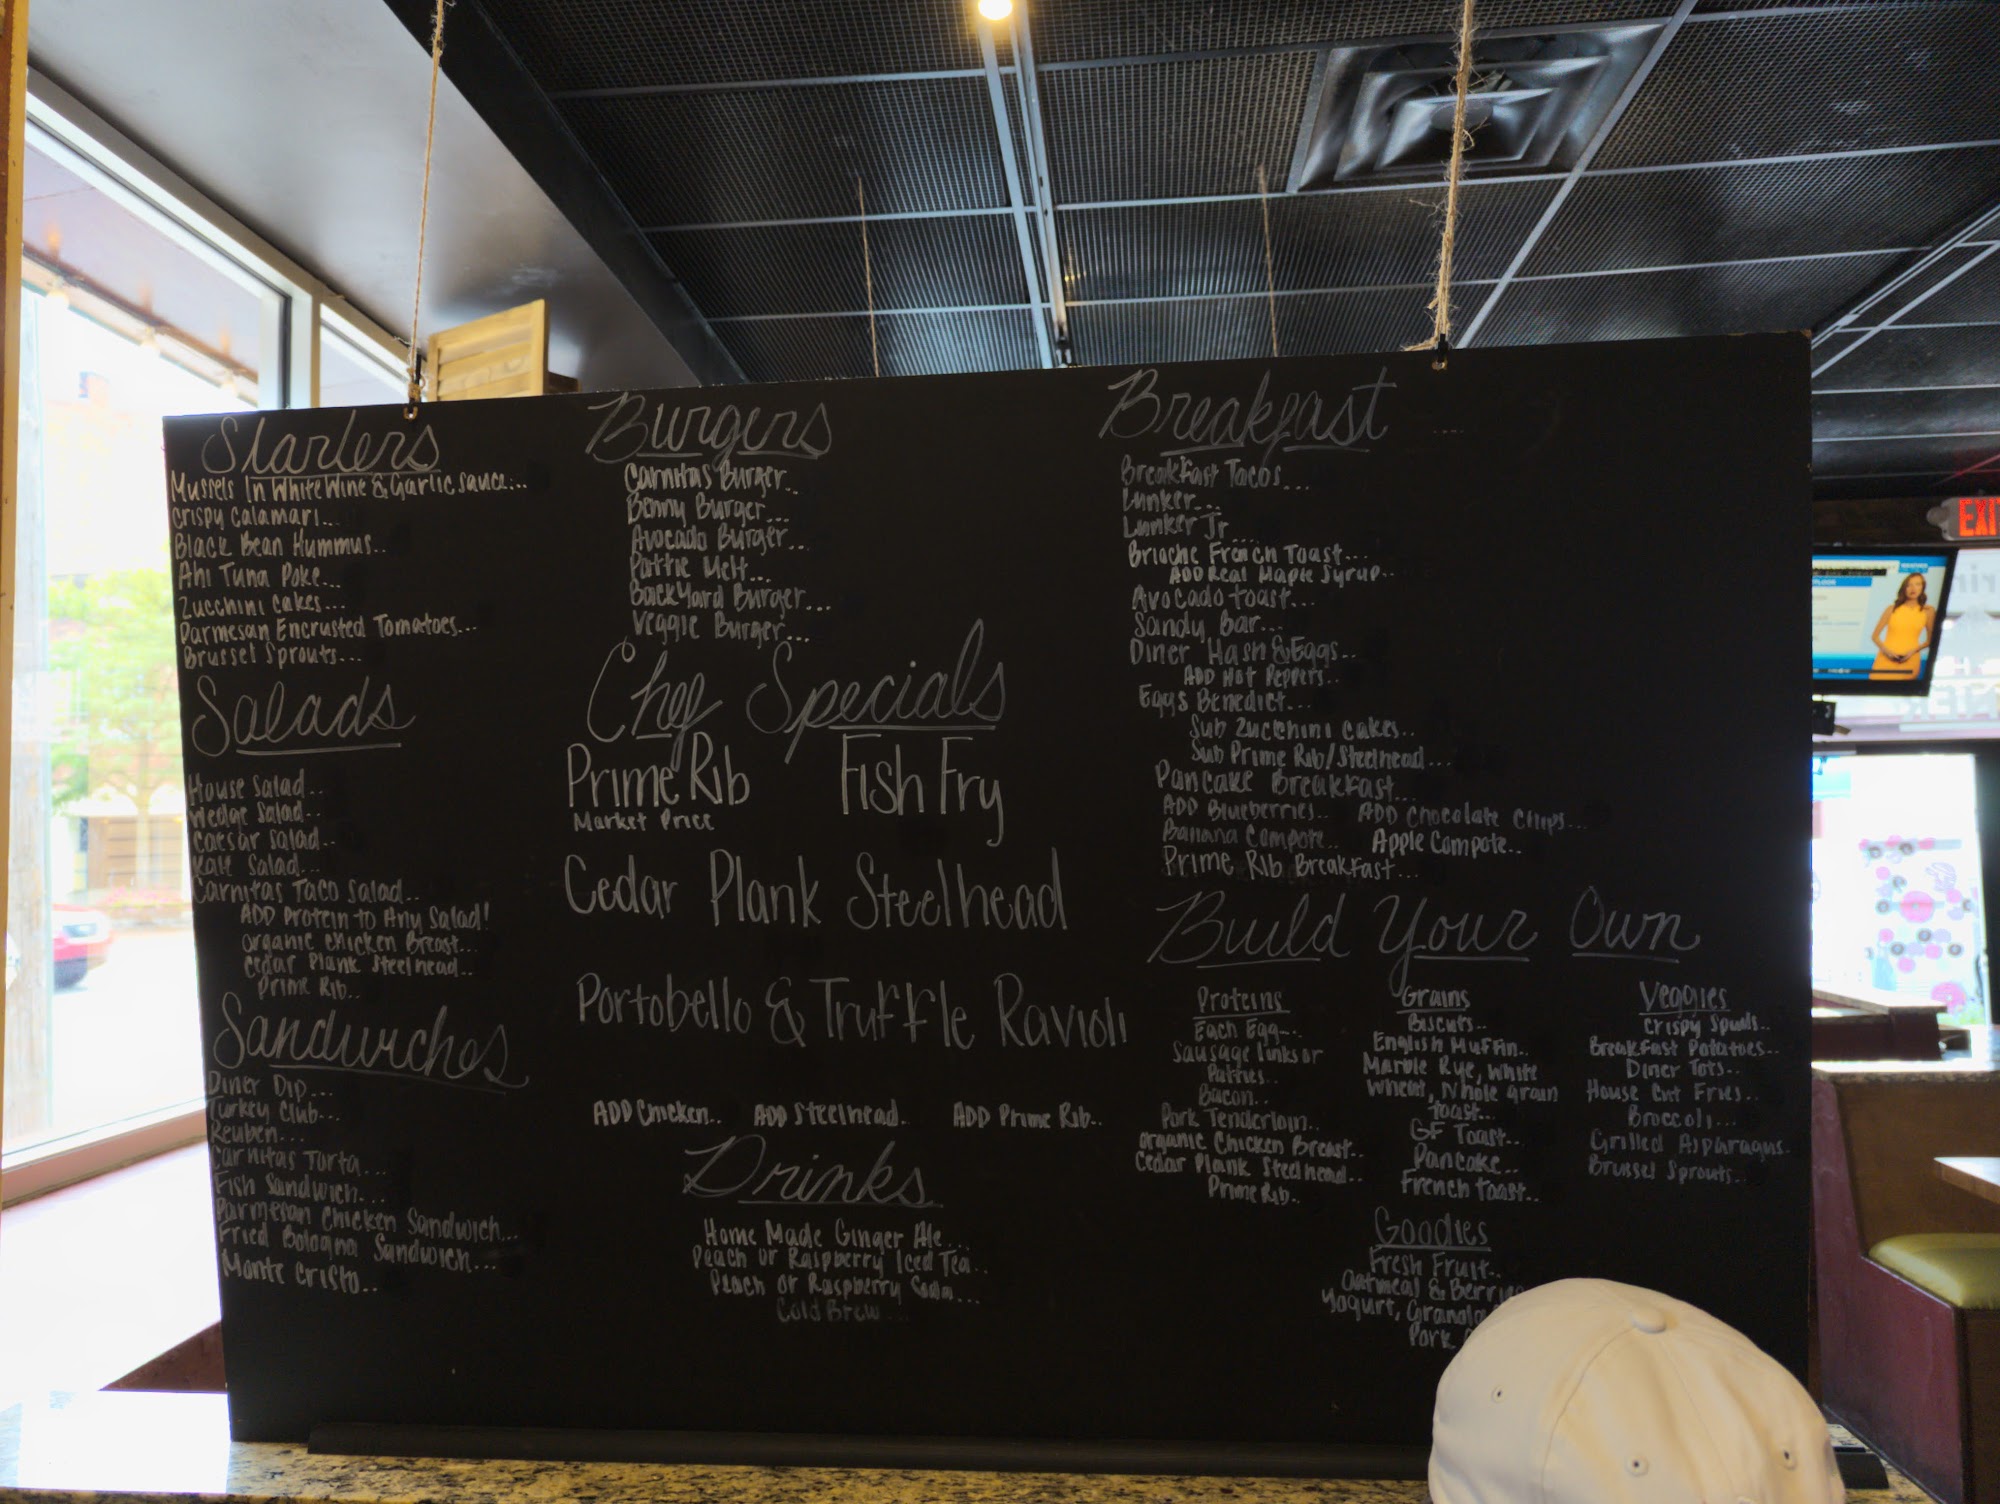 Starters
Mussels In White Wine & Garlic sauce...
Crispy Calamari...
Black Bean Hummus..
Ahi Tuna Poke...
Zucchini cakes...
Parmesan Encrusted Tomatoes...
Brussel Sprouts...
Salads
House Salad..
Wedge Salad..
Caesar Salad..
Kale Salad...
Carnitas Taco Salad..
ADD Protein to Any Salad!
Organic Chicken Breast...
Cedar Plank Steelhead..
Prime Rib..
Sandwiches
Diner Dip...
Turkey Club...
Reuben...
Carnitas Torta...
Fish Sandwich...
Parmesan Chicken Sandwich...
Fried Bologna Sandwich...
Monte Cristo..
Burgers
Carnitas Burger..
Benny Burger...
Avocado Burger...
Pattie Melt...
BackYard Burger...
Veggie Burger...
Chef Specials
Prime Rib
Market Price
Fish Fry
Cedar Plank Steelhead
Portobello & Truffle Ravioli
ADD Chicken..
ADD Steelhead.
ADD Prime Rib..
Drinks
Home Made Ginger Ale...
Peach or Raspberry Iced Tea..
Peach or Raspberry Soda...
Cold Brew...
Breakfast
Breakfast Tacos...
Lunker...
Lunker Jr...
Brioche French Toast...
ADD Real Maple Syrup..
Avocado toast...
Sandy Bar...
Diner Hash & Eggs..
ADD Hot Peppers..
Eggs Benedict...
Sub Zucchini cakes..
Sub Prime Rib/Steelhead...
Pancake Breakfast...
ADD Blueberries.. ADD Chocolate Chips...
Banana Compote.. Apple Compote..
Prime Rib Breakfast...
Build Your Own
Proteins
Each Egg...
Sausage links or
Patties..
Bacon..
Pork Tenderloin..
Organic Chicken Breast..
Cedar Plank Steelhead..
Prime Rib..
Grains
Biscuts..
English Muffin..
Marble Rye, White
Wheat, Whole grain
toast...
GF Toast..
Pancake..
French toast..
Veggies
Crispy Spuds..
Breakfast Potatoes..
Diner Tots..
House Cut Fries..
Broccoli...
Grilled Asparagus.
Brussel Sprouts..
Goodies
Fresh Fruit..
Oatmeal & Berri
Yogurt, Granola
Pork
EXI